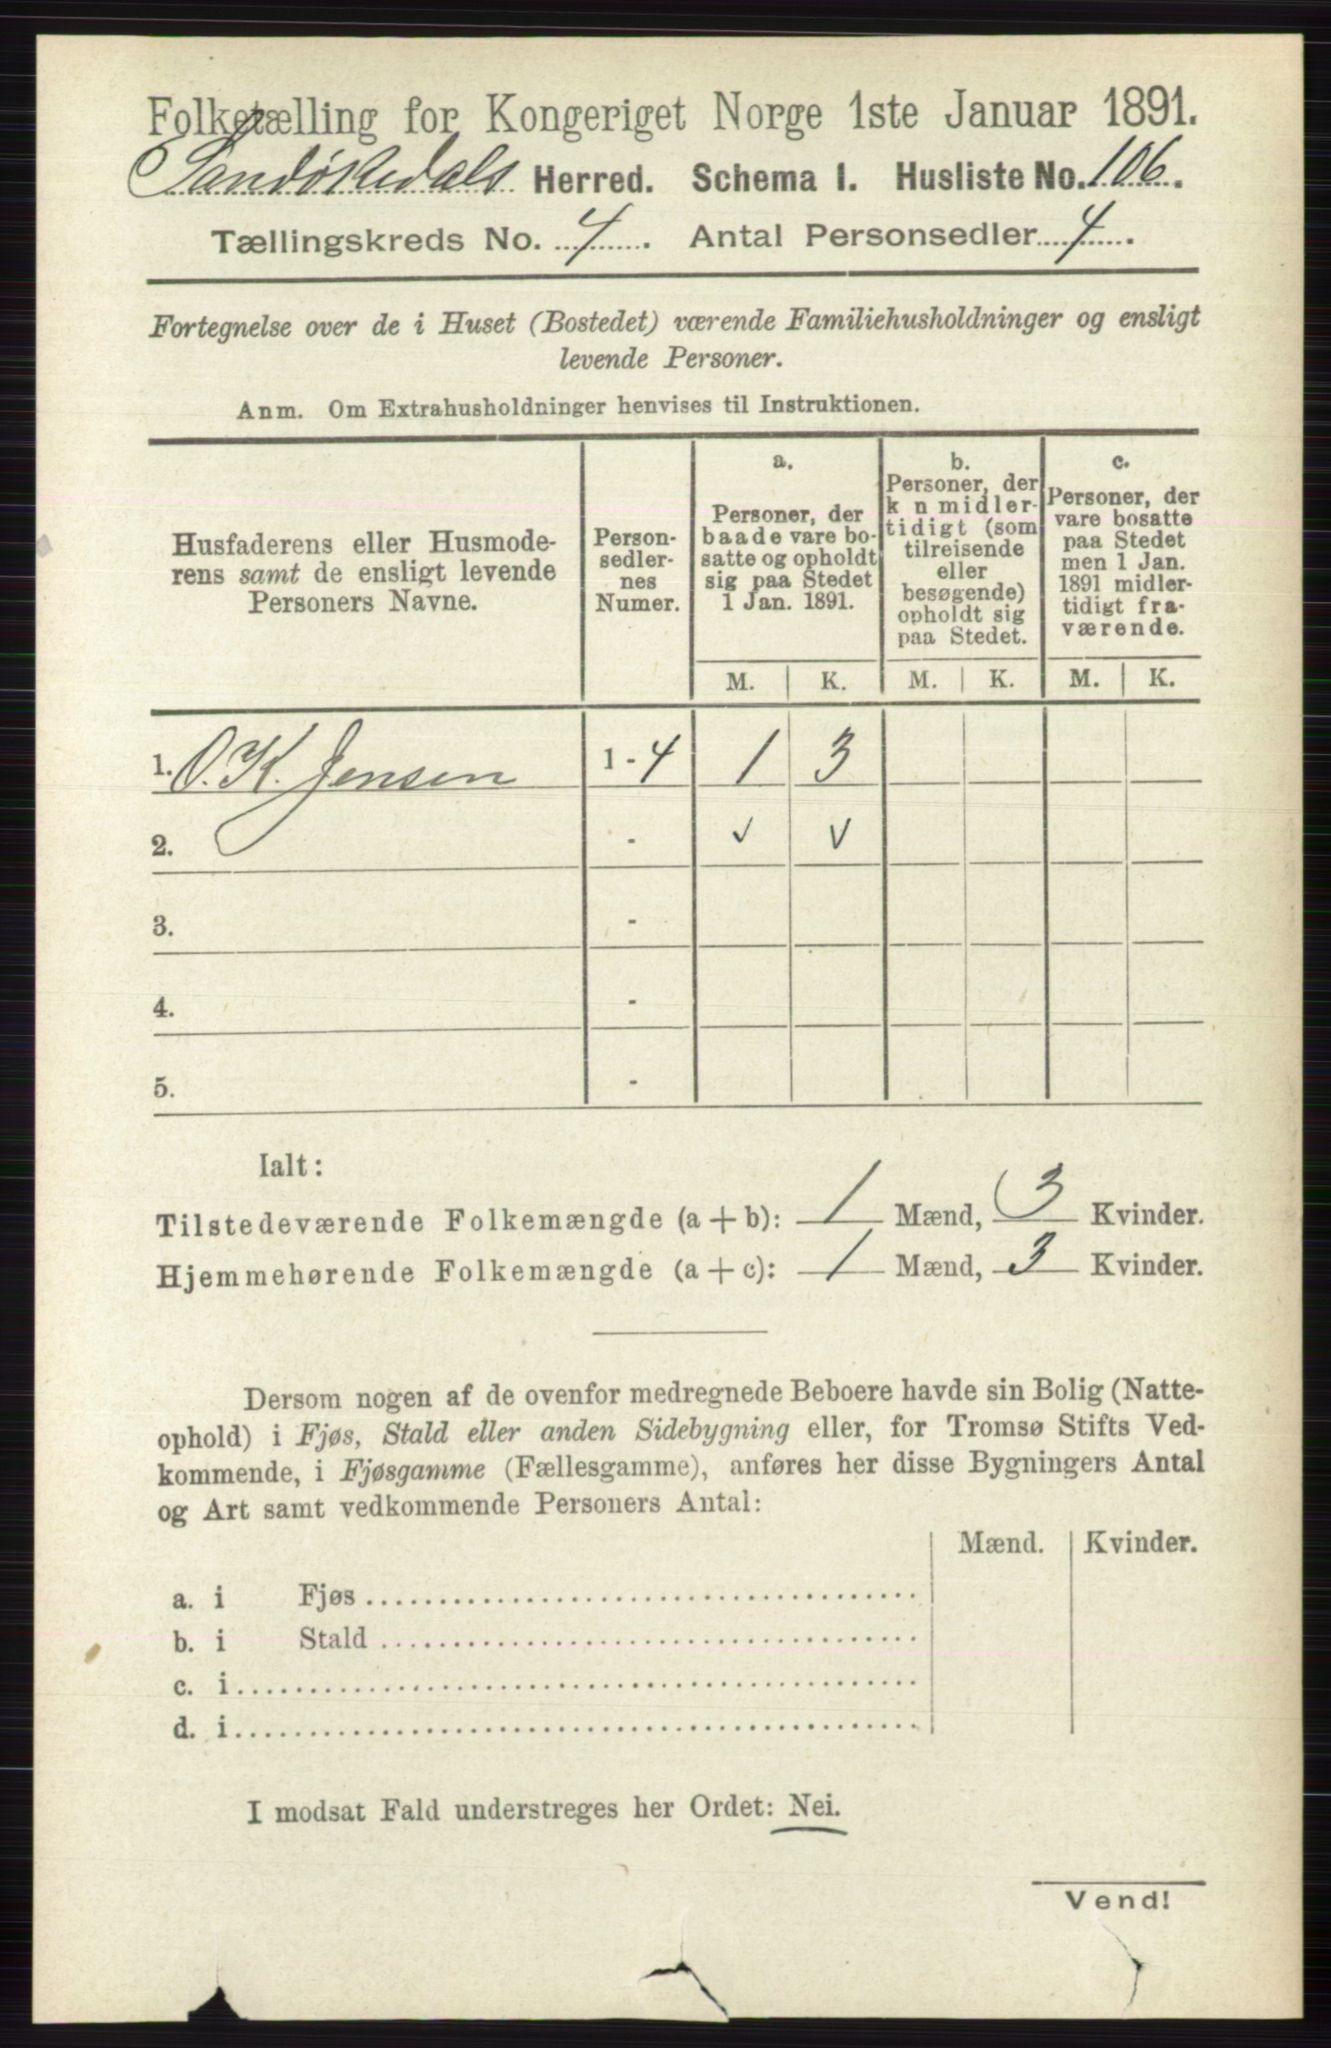 Folketælling for Kongeriget Norge 1ste Januar 1891.
Sandøkedals Herred. Schema I. Husliste No. 106.
Tællingskreds No. 4. Antal Personsedler 4.
Fortegnelse over de i Huset (Bostedet) værende Familiehusholdninger og ensligt
levende Personer.
Anm. Om Extrahusholdninger henvises til Instruktionen.
Husfaderens eller Husmode-
rens samt de ensligt levende
Personers Navne.
Person-
sedler-
nes
Numer.
a.
Personer, der
baade vare bo-
satte og opholdt
sig paa Stedet
1 Jan. 1891.
b.
Personer, der
k n midler-
tidigt (som
tilreisende
eller
besøgende)
opholdt sig
paa Stedet.
c.
Personer, der
vare bosatte
paa Stedet
men 1 Jan.
1891 midler-
tidigt fra-
værende.
M. K. M. K. M. K.
1. O. K. Jensen 1 - 4 1 3
2. - ✓ ✓
3. -
4. -
5. -
Ialt:
Tilstedeværende Folkemængde (a + b): 1 Mænd, 3 Kvinder.
Hjemmehørende Folkemængde (a + c): 1 Mænd, 3 Kvinder.
Dersom nogen af de ovenfor medregnede Beboere havde sin Bolig (Natte-
ophold) i Fjøs, Stald eller anden Sidebygning eller, for Tromsø Stifts Ved-
kommende, i Fjøsgamme (Fællesgamme), anføres her disse Bygningers Antal
og Art samt vedkommende Personers Antal:
Mænd. Kvinder.
a. i Fjøs
b. i Stald
c. i
d. i
I modsat Fald understreges her Ordet: Nei.
Vend!